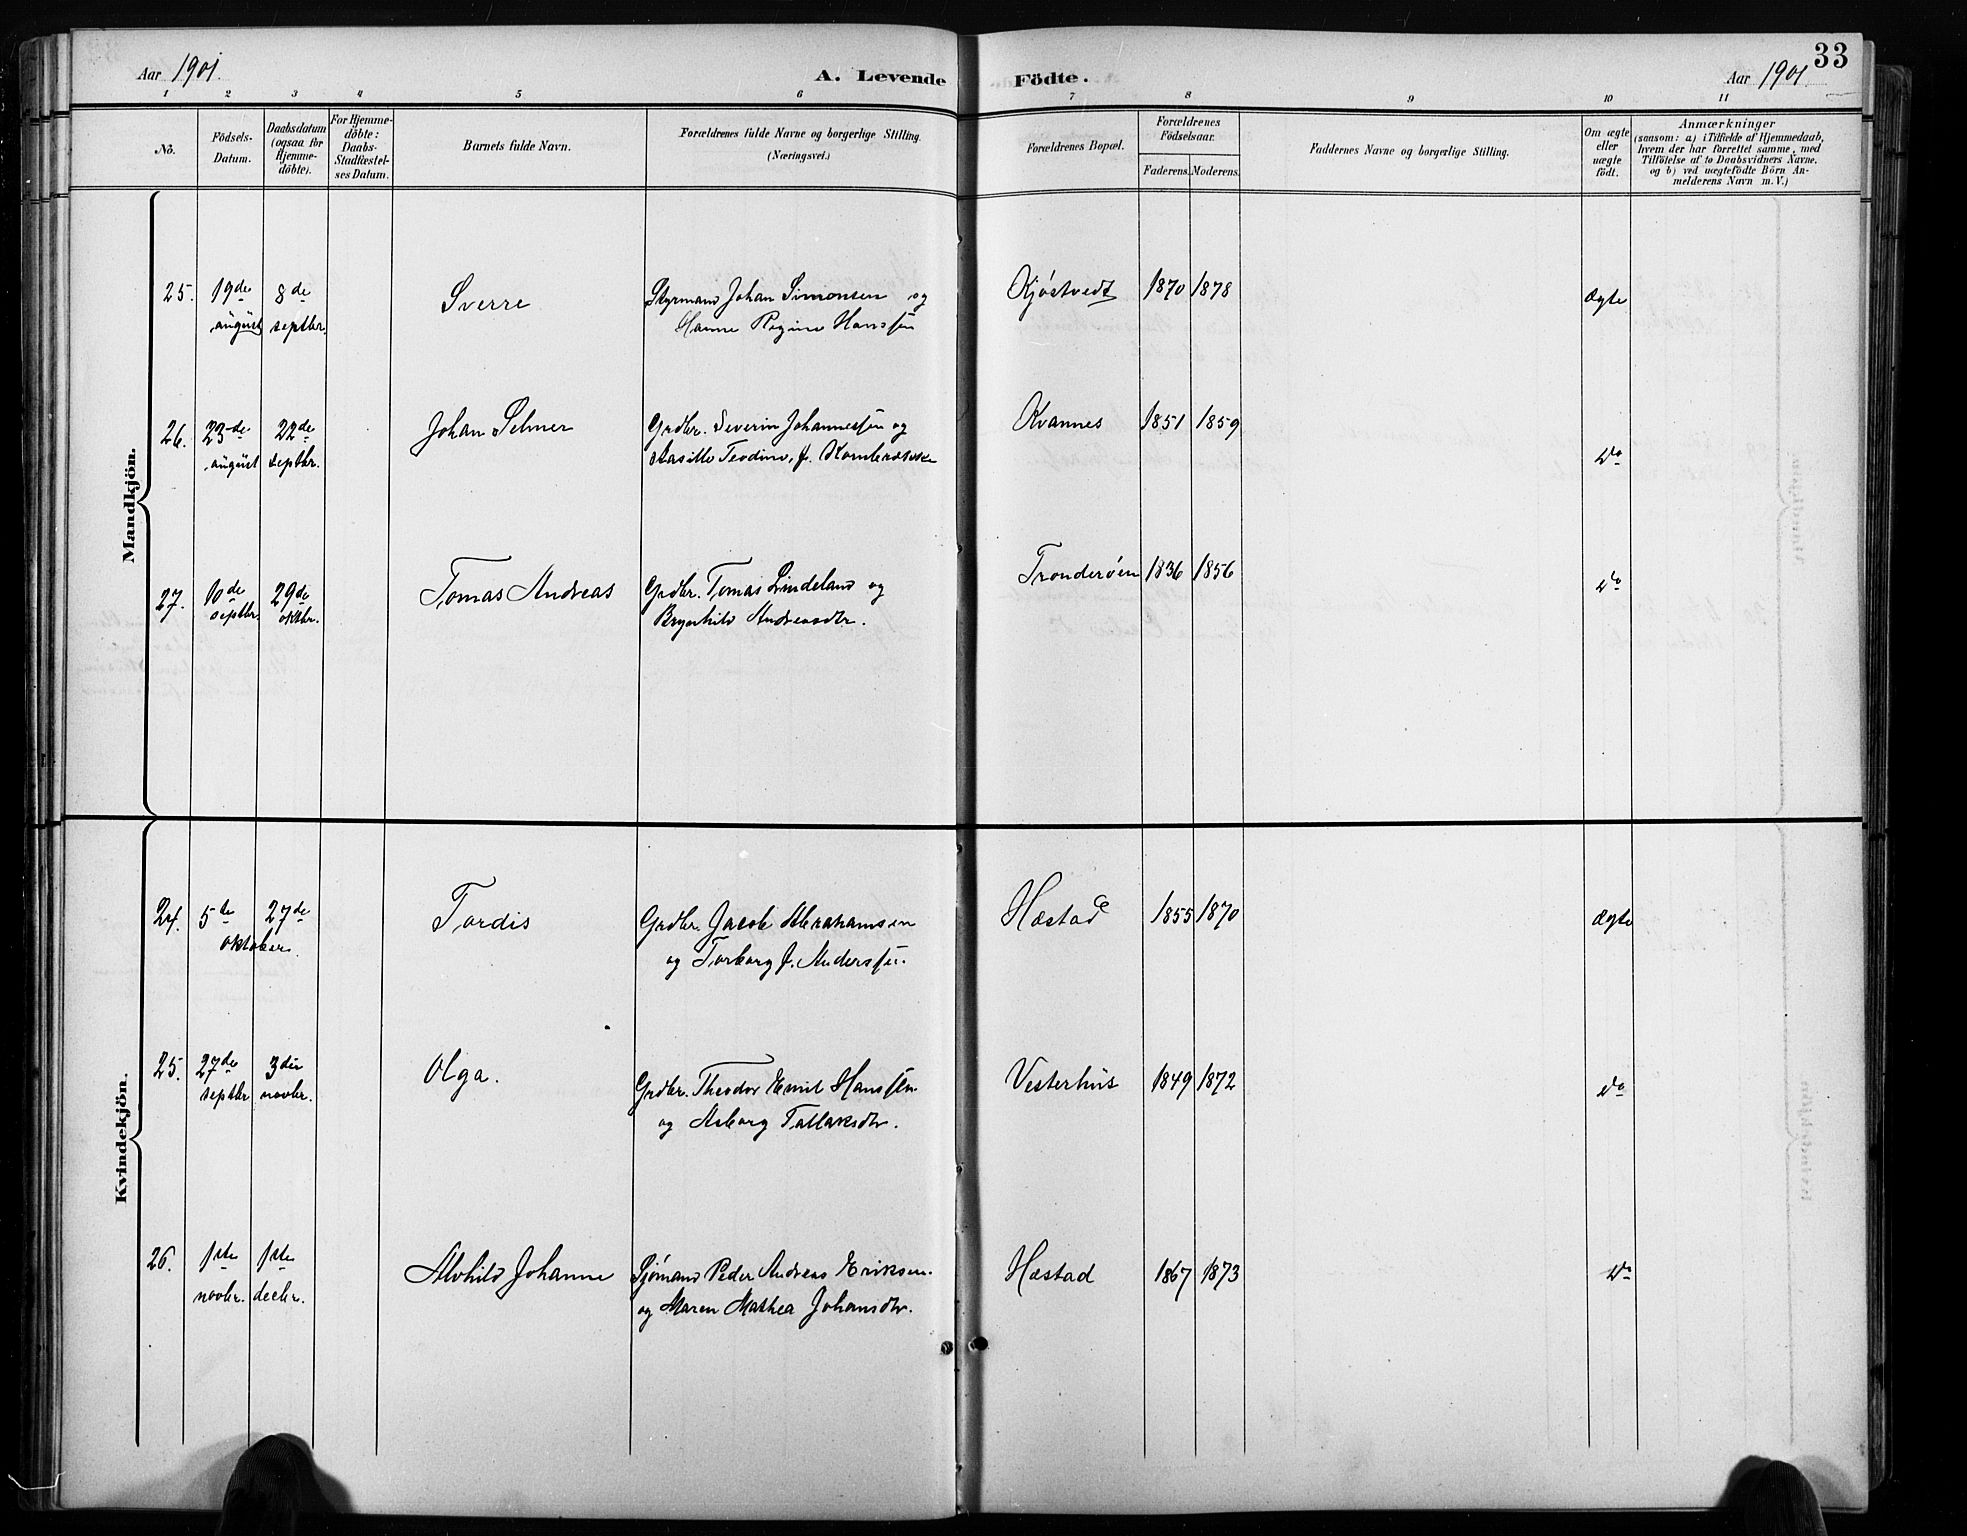 33
Aar 1901. A. Levende Födte. Aar 1901
1 2 3 4 5 6 7 8 9 10 11
No.
Födsels-
Datum.
Daabsdatum
(ogsaa for
Hjemme-
döbte).
For Hjemme-
döbte:
Daabs-
Stadfæstel-
ses Datum.
Barnets fulde Navn.
Forældrenes fulde Navne og borgerlige Stilling.
(Næringsvei.)
Forældrenes Bopæl.
Forældrenes
Födselsaar.
Faderens. Moderens.
Faddernes Navne og borgerlige Stilling.
Om ægte
eller
uægte
födt.
Anmærkninger
(saasom: a) i Tilfælde af Hjemmedaab,
hvem der har forrettet samme, med
Tilföielse af to Daabsvidners Navne,
og b) ved uægtefödte Börn An-
melderens Navn m. V.)
Mandkjön.
25. 19de august 8de septbr. Sverre Styrmand Johan Simonsen og Kjøstvedt 1870 1878 Ægte
Hanne Regine Hanssen
26. 23de august 22de septbr. Johan Selmer Grdbr. Severin Johannessen og Kvannes 1851 1859 do
Teodine, f.
27. 10de septbr. 29de oktbr. Tomas Andreas Grdbr. Tomas Lindeland og Tronderøen 1836 1856 do
Brynhild Andreasdtr.
Kvindekjön.
24. 5te 27de oktober. Tordis Grdbr. Jacob Abrahamsen Hæstad 1855 1870 Ægte
og Torborg J. Anderssen.
25. 27de septbr 3die novbr. Olga. Grdbr. Theodor Emil Hanssen Vesterhus 1849 1872 do
og Asborg Tallaksdtr.
26. 1ste novbr. 1ste decbr. Alvhild Johanne Sjømand Peder Andreas Eriksen Hæstad 1867 1873 do
og Maren Mathea Johansdtr.